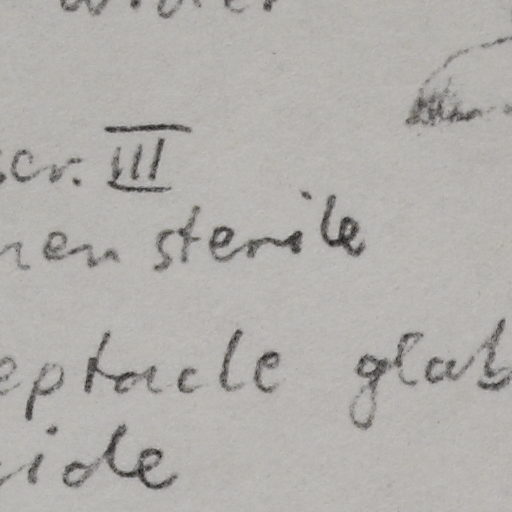 wider
scr. III
men sterile
eptacle glab
ide